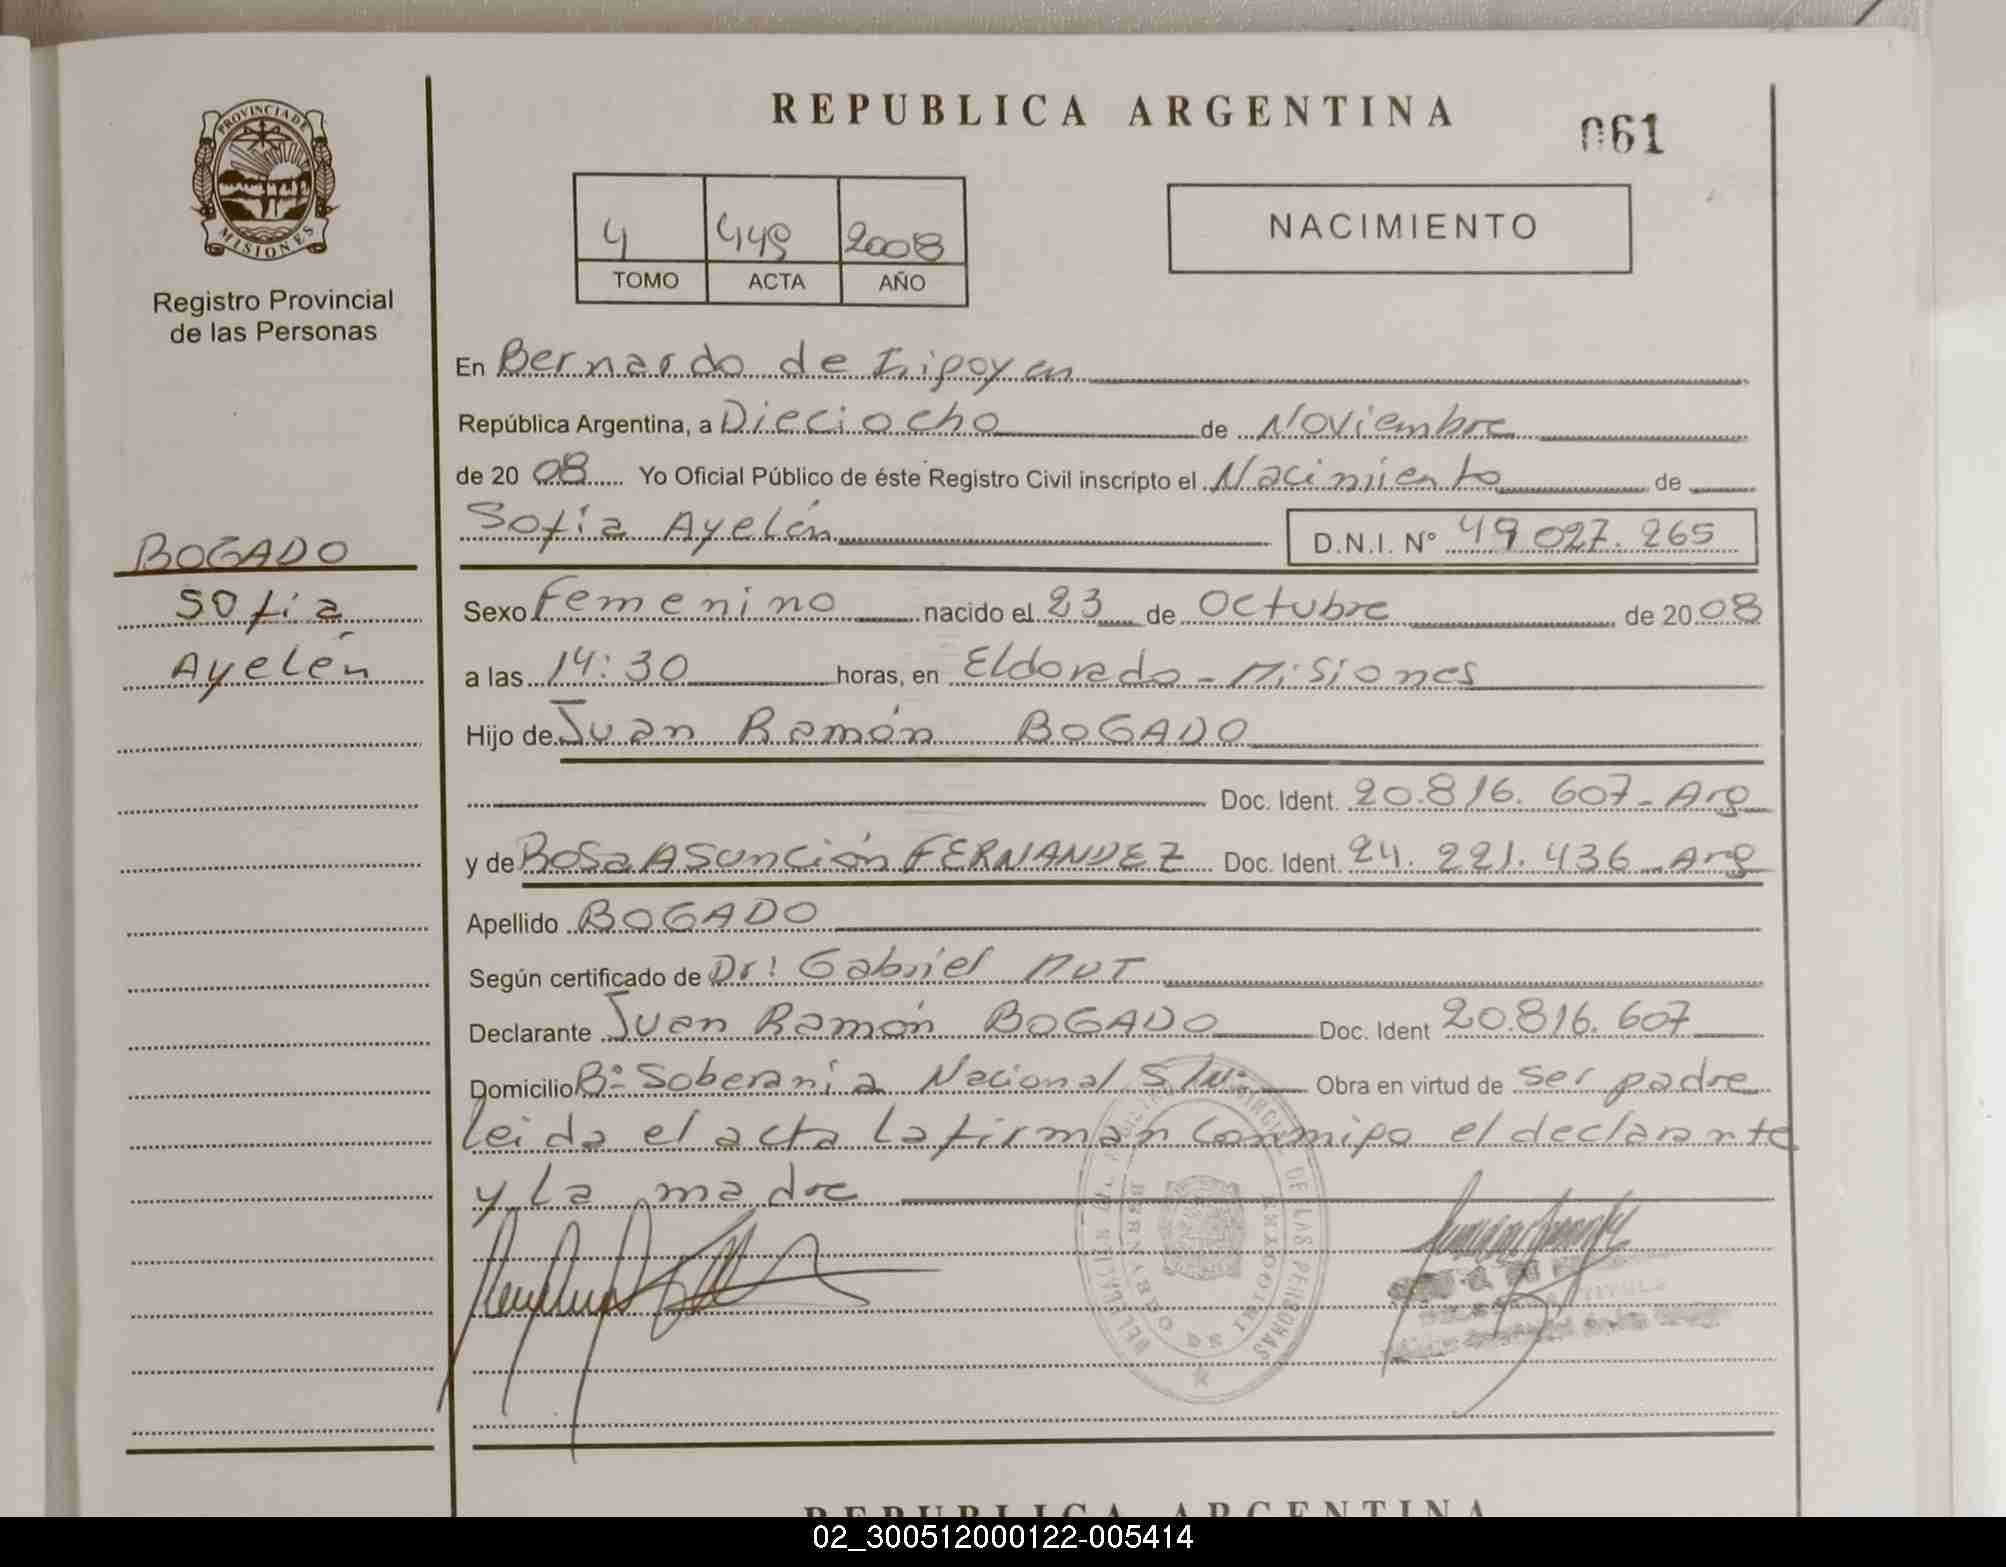 REPUBLICA ARGENTINA
061
PROVINCIA DE
MISIONES
Registro Provincial
de las Personas
4 449 2008
TOMO ACTA AÑO
NACIMIENTO
En Bernardo de Iripoyen
República Argentina, a Dieciocho de Noviembre
de 20 08 Yo Oficial Público de éste Registro Civil inscripto el Nacimiento de
Sofía Ayelén D.N.I. Nº 49 027. 265
BOGADO
Sofía
Ayelén
Sexo Femenino nacido el 23 de Octubre de 20 08
a las 14:30 horas, en Eldorado - Misiones
Hijo de Juan Ramón BOGADO
Doc. Ident. 20.816. 607 - Arg
y de Rosa Asunción FERNANDEZ Doc. Ident. 24. 221. 436 - Arg
Apellido BOGADO
Según certificado de Dr: Gabriel MUT
Declarante Juan Ramón BOGADO Doc. Ident 20.816. 607
Domicilio Bº Soberanía Nacional S/Nº Obra en virtud de ser padre
leida el acta la firman conmipo el declarante
y la madre
DE LAS PERSONAS
REPUBLICA ARGENTINA
02_300512000122-005414